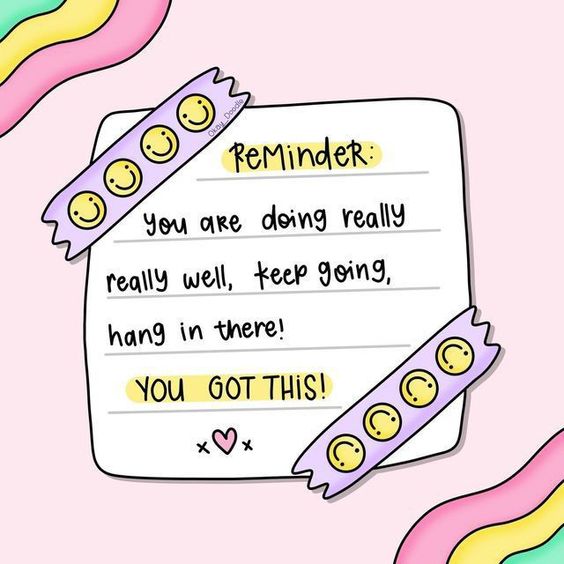 Okay_Doodle
Reminder:
you are doing really
really well, keep going,
hang in there!
YOU GOT THIS!
x x